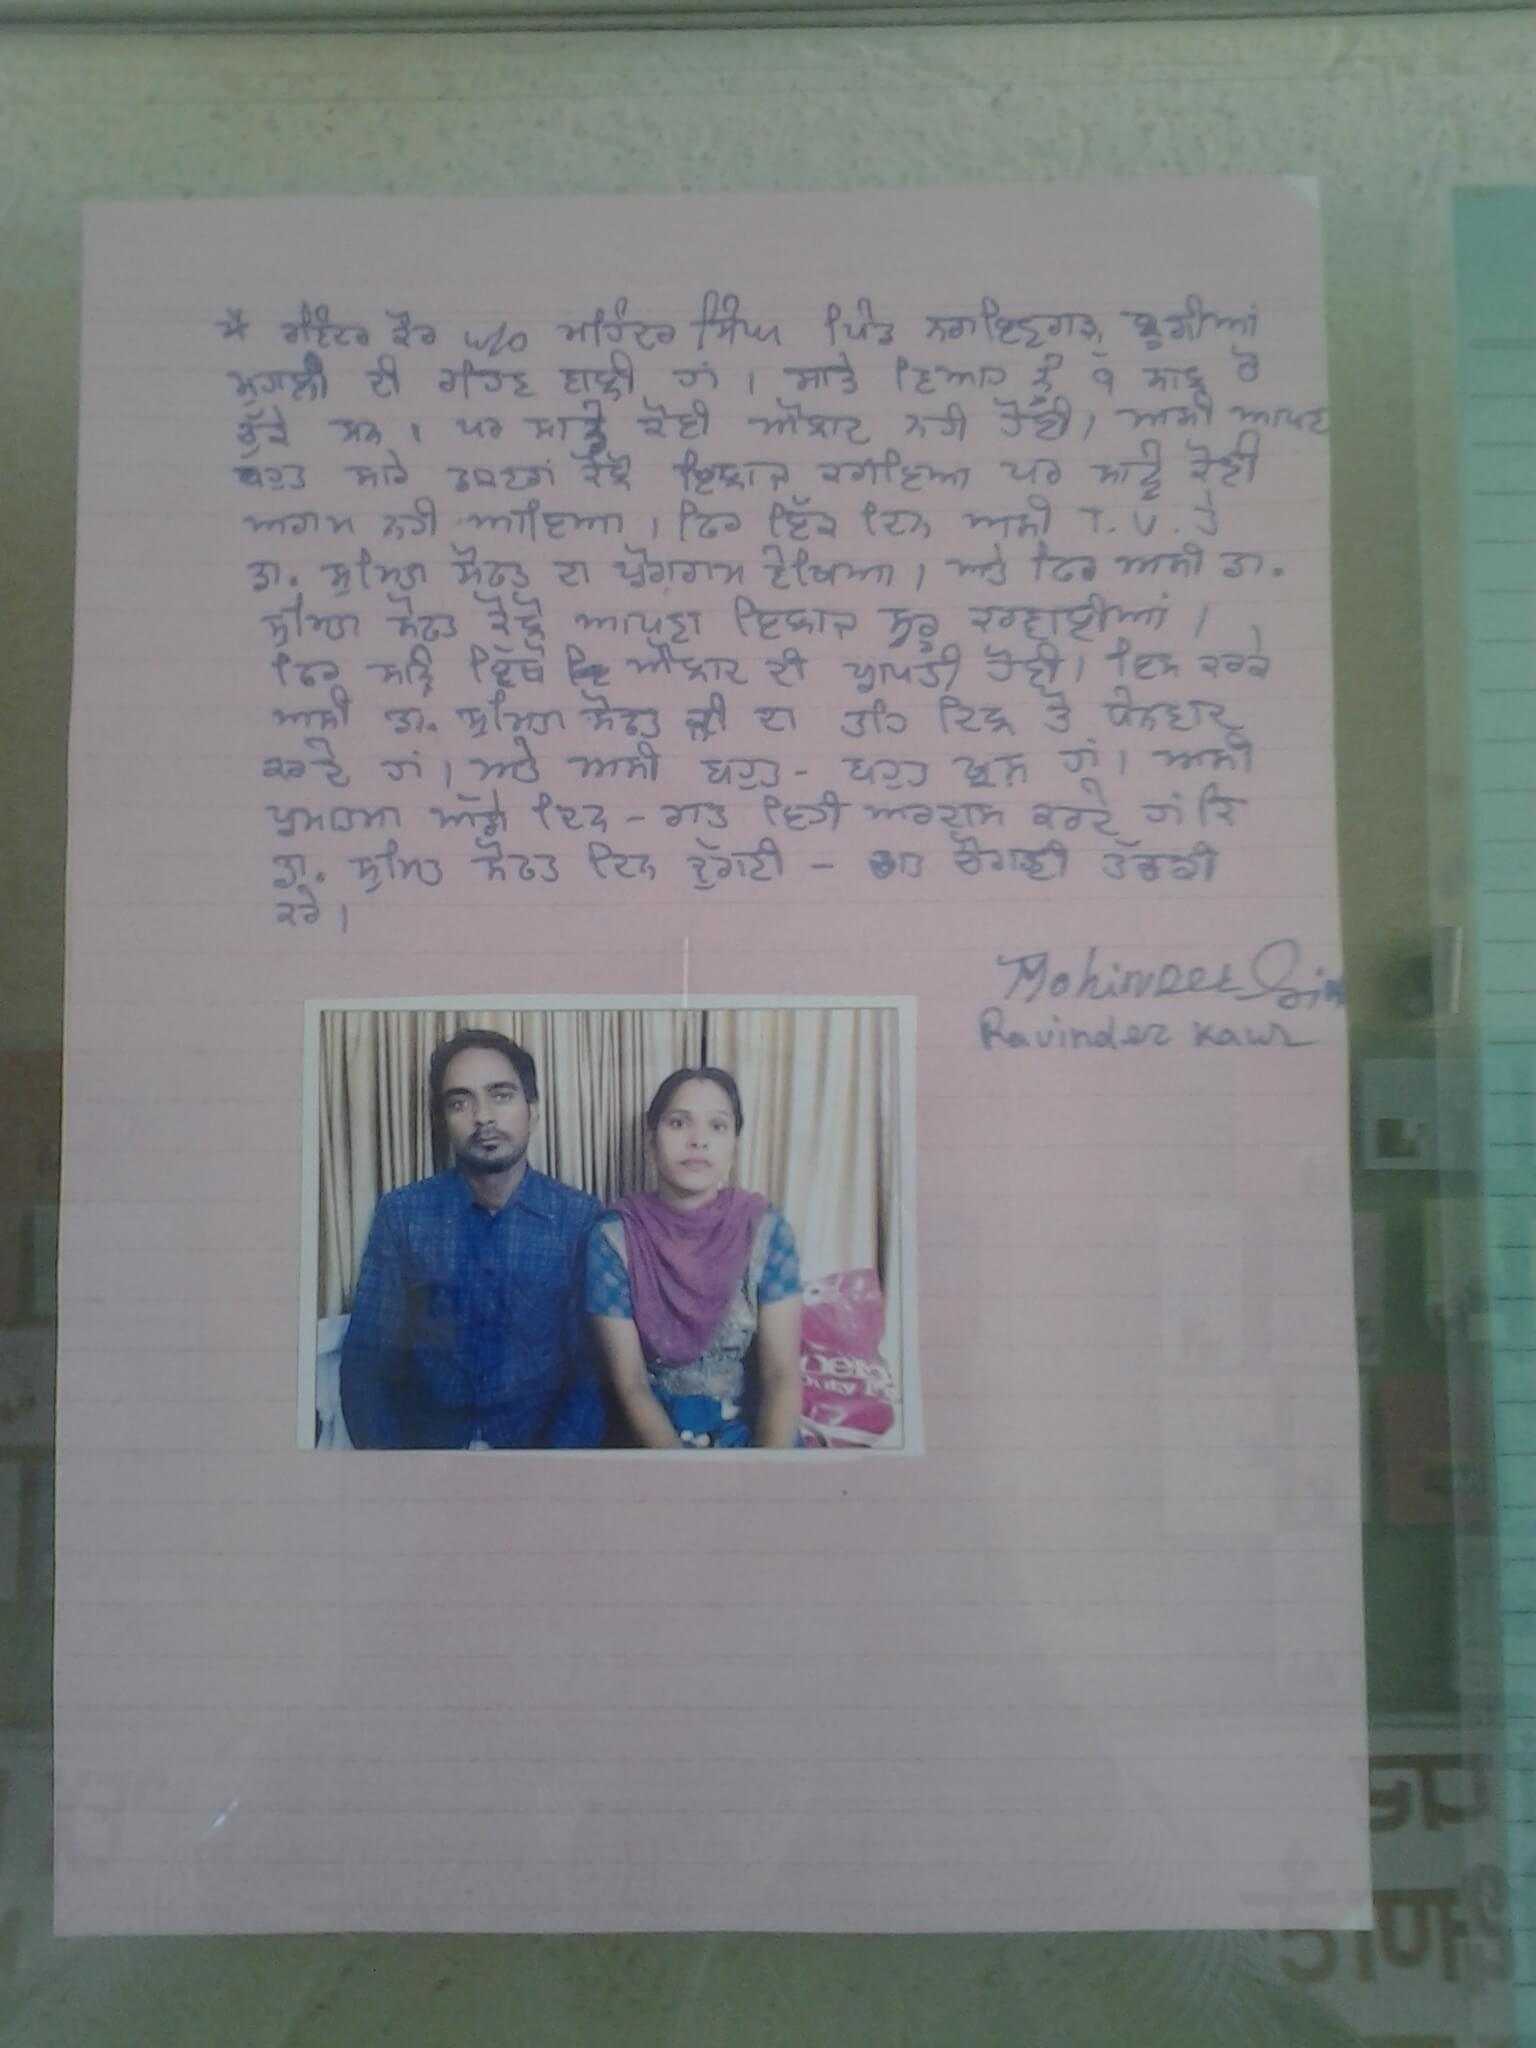 ਮੈਂ ਰਵਿੰਦਰ ਕੌਰ w/o ਮਹਿੰਦਰ ਸਿੰਘ ਪਿੰਡ ਨਰਾਇਣਗੜ ਝੁਗੀਆਂ
ਦੀ ਰਹਿਣ ਵਾਲੀ ਹਾਂ। ਸਾਡੇ ਵਿਆਹ ਨੂੰ 9 ਸਾਲ ਹੋ
ਚੁੱਕੇ ਸਨ। ਪਰ ਸਾਨੂੰ ਕੋਈ ਔਲਾਦ ਨਹੀ ਹੋਈ। ਅਸੀ ਆਪਣਾ
ਬਹੁਤ ਸਾਰੇ ਡਾਕਟਰਾਂ ਕੋਲੋ ਇਲਾਜ ਕਰਾਇਆ ਪਰ ਸਾਨੂੰ ਕੋਈ
ਅਰਾਮ ਨਹੀ ਆਇਆ। ਫਿਰ ਇੱਕ ਦਿਨ ਅਸੀ T.V. ਤੇ
ਡਾ. ਸੁਮਿਤਾ ਸੋਫਤ ਦਾ ਪ੍ਰੋਗਰਾਮ ਦੇਖਿਆ। ਅਤੇ ਫਿਰ ਅਸੀ ਡਾ.
ਸੁਮਿਤਾ ਸੋਫਤ ਕੋਲੋ ਆਪਣਾ ਇਲਾਜ ਸ਼ੁਰੂ ਕਰਵਾਈਆਂ।
ਫਿਰ ਸਾਨੂੰ ਇੱਥੋ ਔਲਾਦ ਦੀ ਪ੍ਰਾਪਤੀ ਹੋਈ। ਇਸ ਕਰਕੇ
ਅਸੀ ਡਾ. ਸੁਮਿਤਾ ਸੋਫਤ ਜੀ ਦਾ ਤਹਿ ਦਿਲ ਤੋ ਧੰਨਵਾਦ
ਕਰਦੇ ਹਾਂ। ਅਤੇ ਅਸੀ ਬਹੁਤ - ਬਹੁਤ ਖੁਸ਼ ਹਾਂ। ਅਸੀ
ਪ੍ਰਮਾਤਮਾ ਅੱਗੇ ਦਿਨ - ਰਾਤ ਇਹੀ ਅਰਦਾਸ ਕਰਦੇ ਹਾਂ ਕਿ
ਡਾ. ਸੁਮਿਤਾ ਸੋਫਤ ਦਿਨ ਦੁੱਗਣੀ - ਰਾਤ ਚੌਗਣੀ ਤੱਰਕੀ
ਕਰੇ।
Mohinder Sin
Ravinder Kaur